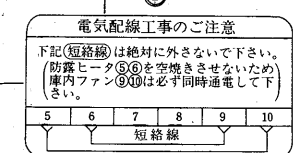 電気配線工事のご注意
下記(短絡線)は絶対に外さないで下さい。
(防露ヒータ⑤⑥を空焼きさせないため
庫内ファン⑨⑩は必ず同時通電して下
さい。)
5 6 7 8 9 10
短絡線